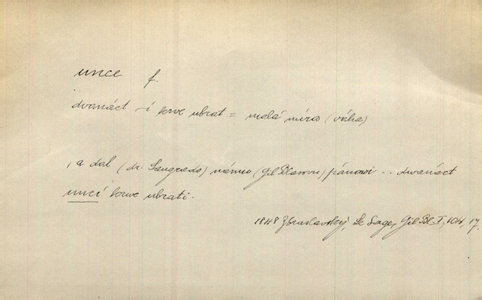 unce f.
dvanáct -í krve ubrat = malá míra (váha)
, a dal (dr. Sangrado) mému (Gil Blasovu) pánovi .. dvanáct
uncí krve ubrati.
1848 Zbraslavský, Le Sage, Gil Bl. I, 104, 17.